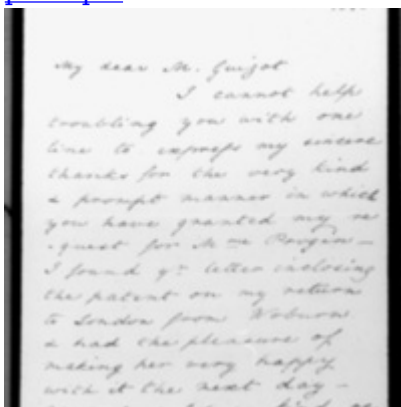 My dear M. Guizot
I cannot help
troubling you with one
line to express my sincere
thanks for the very kind
& prompt manner in which
you have granted my re
-quest for Mme
I found yr letter inclosing
the patent on my return
to London from Woburn
& had the pleasure of
making her very happy
with it the next day –